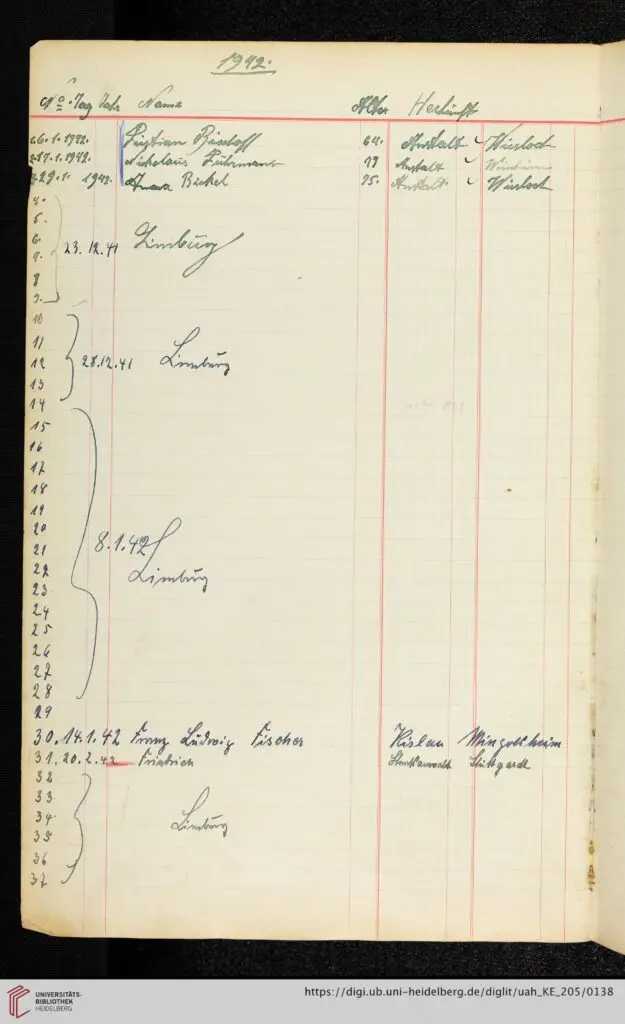 1942.
No. Tag Jahr Name Alter Herkunft
1 6.1.1942. Bischoff 64. Anstalt ✓ Wiesloch
2 17.1.1942. Nikolaus Fuhrmann 77 Anstalt ✓
3 29.1. 1942. Anna Bickel 75. Anstalt ✓ Wiesloch
4.
5.
6.
7. 23.12.41 Limburg
8
9.
10
11
12 28.12.41 Limburg
13
14
15
16
17
18
19
20
21 8.1.42
22 Limburg
23
24
25
26
27
28
29
30. 14.1.42 Franz Ludwig Fischer Kislau Mingolsheim
31. 20.2.42 Friedrich Staatsanwalt Stuttgart
32
33
34 Limburg
35
36
37
UNIVERSITÄTS-
BIBLIOTHEK
HEIDELBERG
https://digi.ub.uni-heidelberg.de/diglit/uah_KE_205/0138